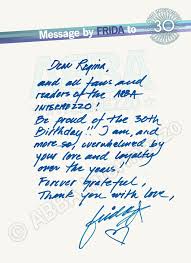 Message by FRIDA to
30
Dear Regina,
and all fans and
readers of the ABBA
INTERMEZZO!
Be proud of the 30th
Birthday!! I am, and
more so, overwhelmed by
your love and loyalty
over the years.
Forever grateful,
Thank you with love,
Frida